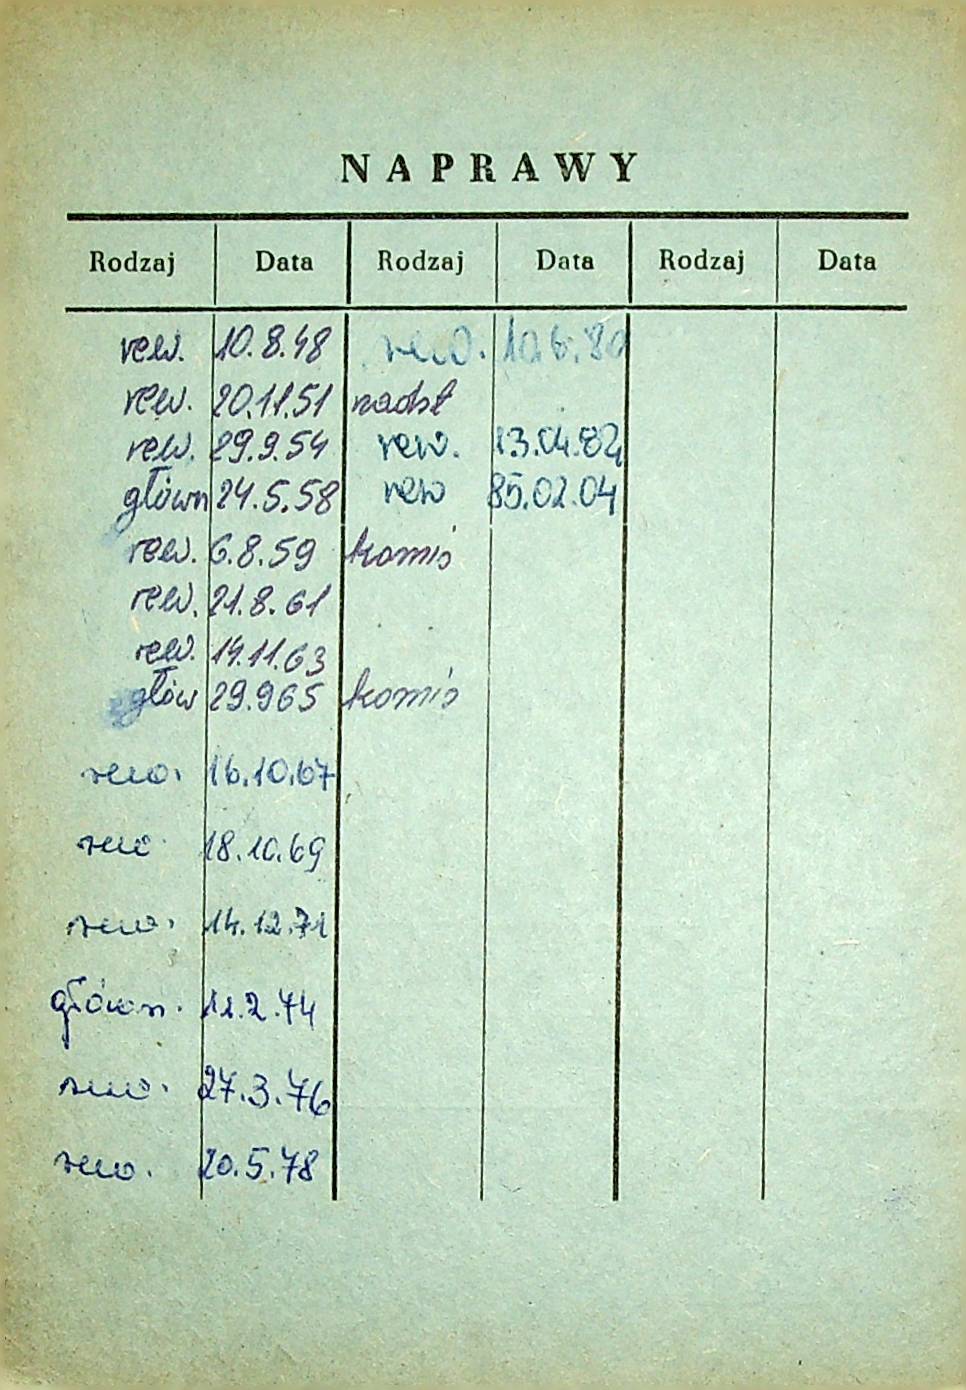 NAPRAWY
Rodzaj Data Rodzaj Data Rodzaj Data
rew. 10.8.48 rew. 10.6.80
rew. 20.11.51 nadst
rew. 29.9.54 rew. 13.04.82
główn 24.5.58 rew 85.02.04
rew. 6.8.59 komis
rew. 21.8.61
rew. 14.11.63
głów 29.965 komis
rew. 16.10.67
rew 18.10.69
rew. 14.12.71
główn. 11.2.74
rew. 27.3.76
rew. 20.5.78